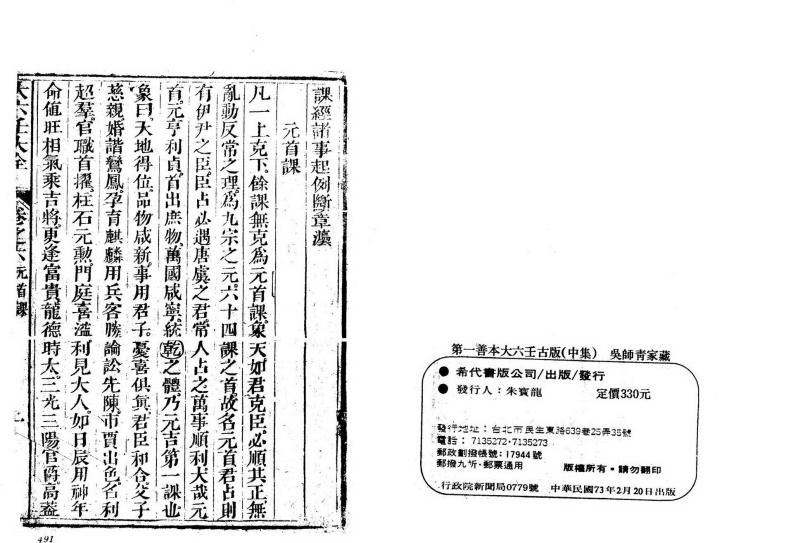 課經諸事起例斷章灋
元首課
凡一上克下餘課無克爲元首課象天如君克臣必順其正無
亂動反常之理爲九宗之元六十四課之首故名元首君占則
有伊尹之臣臣占必遇唐虞之君常人占之萬事順利大哉元
首元亨利貞首出庶物萬國咸寧統乾之體乃元吉第一課也
象曰天地得位品物咸新事用君子憂喜俱眞君臣和合父子
慈親婚諧鸞鳳孕育麒麟用兵客勝論訟先陳市賈出色名利
超羣官職首擢柱石元勲門庭喜溢利見大人如日辰用神年
命值旺相氣乘吉將更逢富貴龍德時太三光三陽官爵高蓋
大六壬大全
卷之六 元首課
一
491
第一善本大六壬古版(中集) 吳師靑家藏
● 希代書版公司/出版/發行
● 發行人:朱寳龍 定價330元
發行地址:台北市民生東路639巷25弄35號
電話:7135272·7135273
郵政劃撥帳號:17944號
郵撥九折·郵票通用 版權所有·請勿翻印
行政院新聞局0779號 中華民國73年2月20日出版